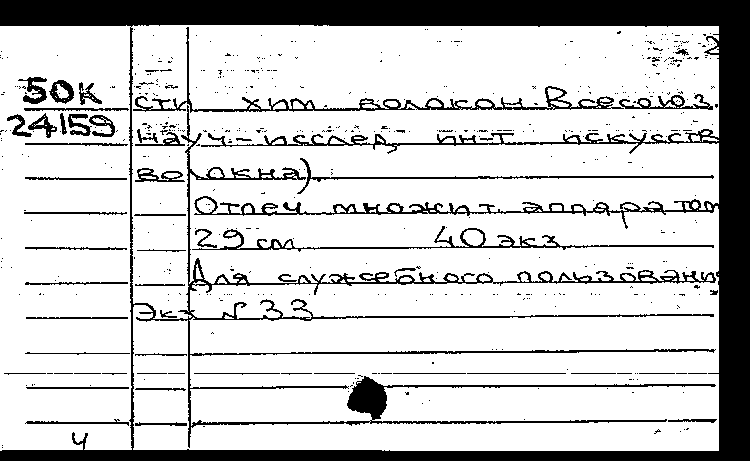 2
50К
24159
сти хим. волокон. Всесоюз.
науч.-исслед. ин-т искусств
волокна).
Отпеч. множит. аппаратом
29 см. 40 экз.
Для служебного пользования
Экз № 33
ч